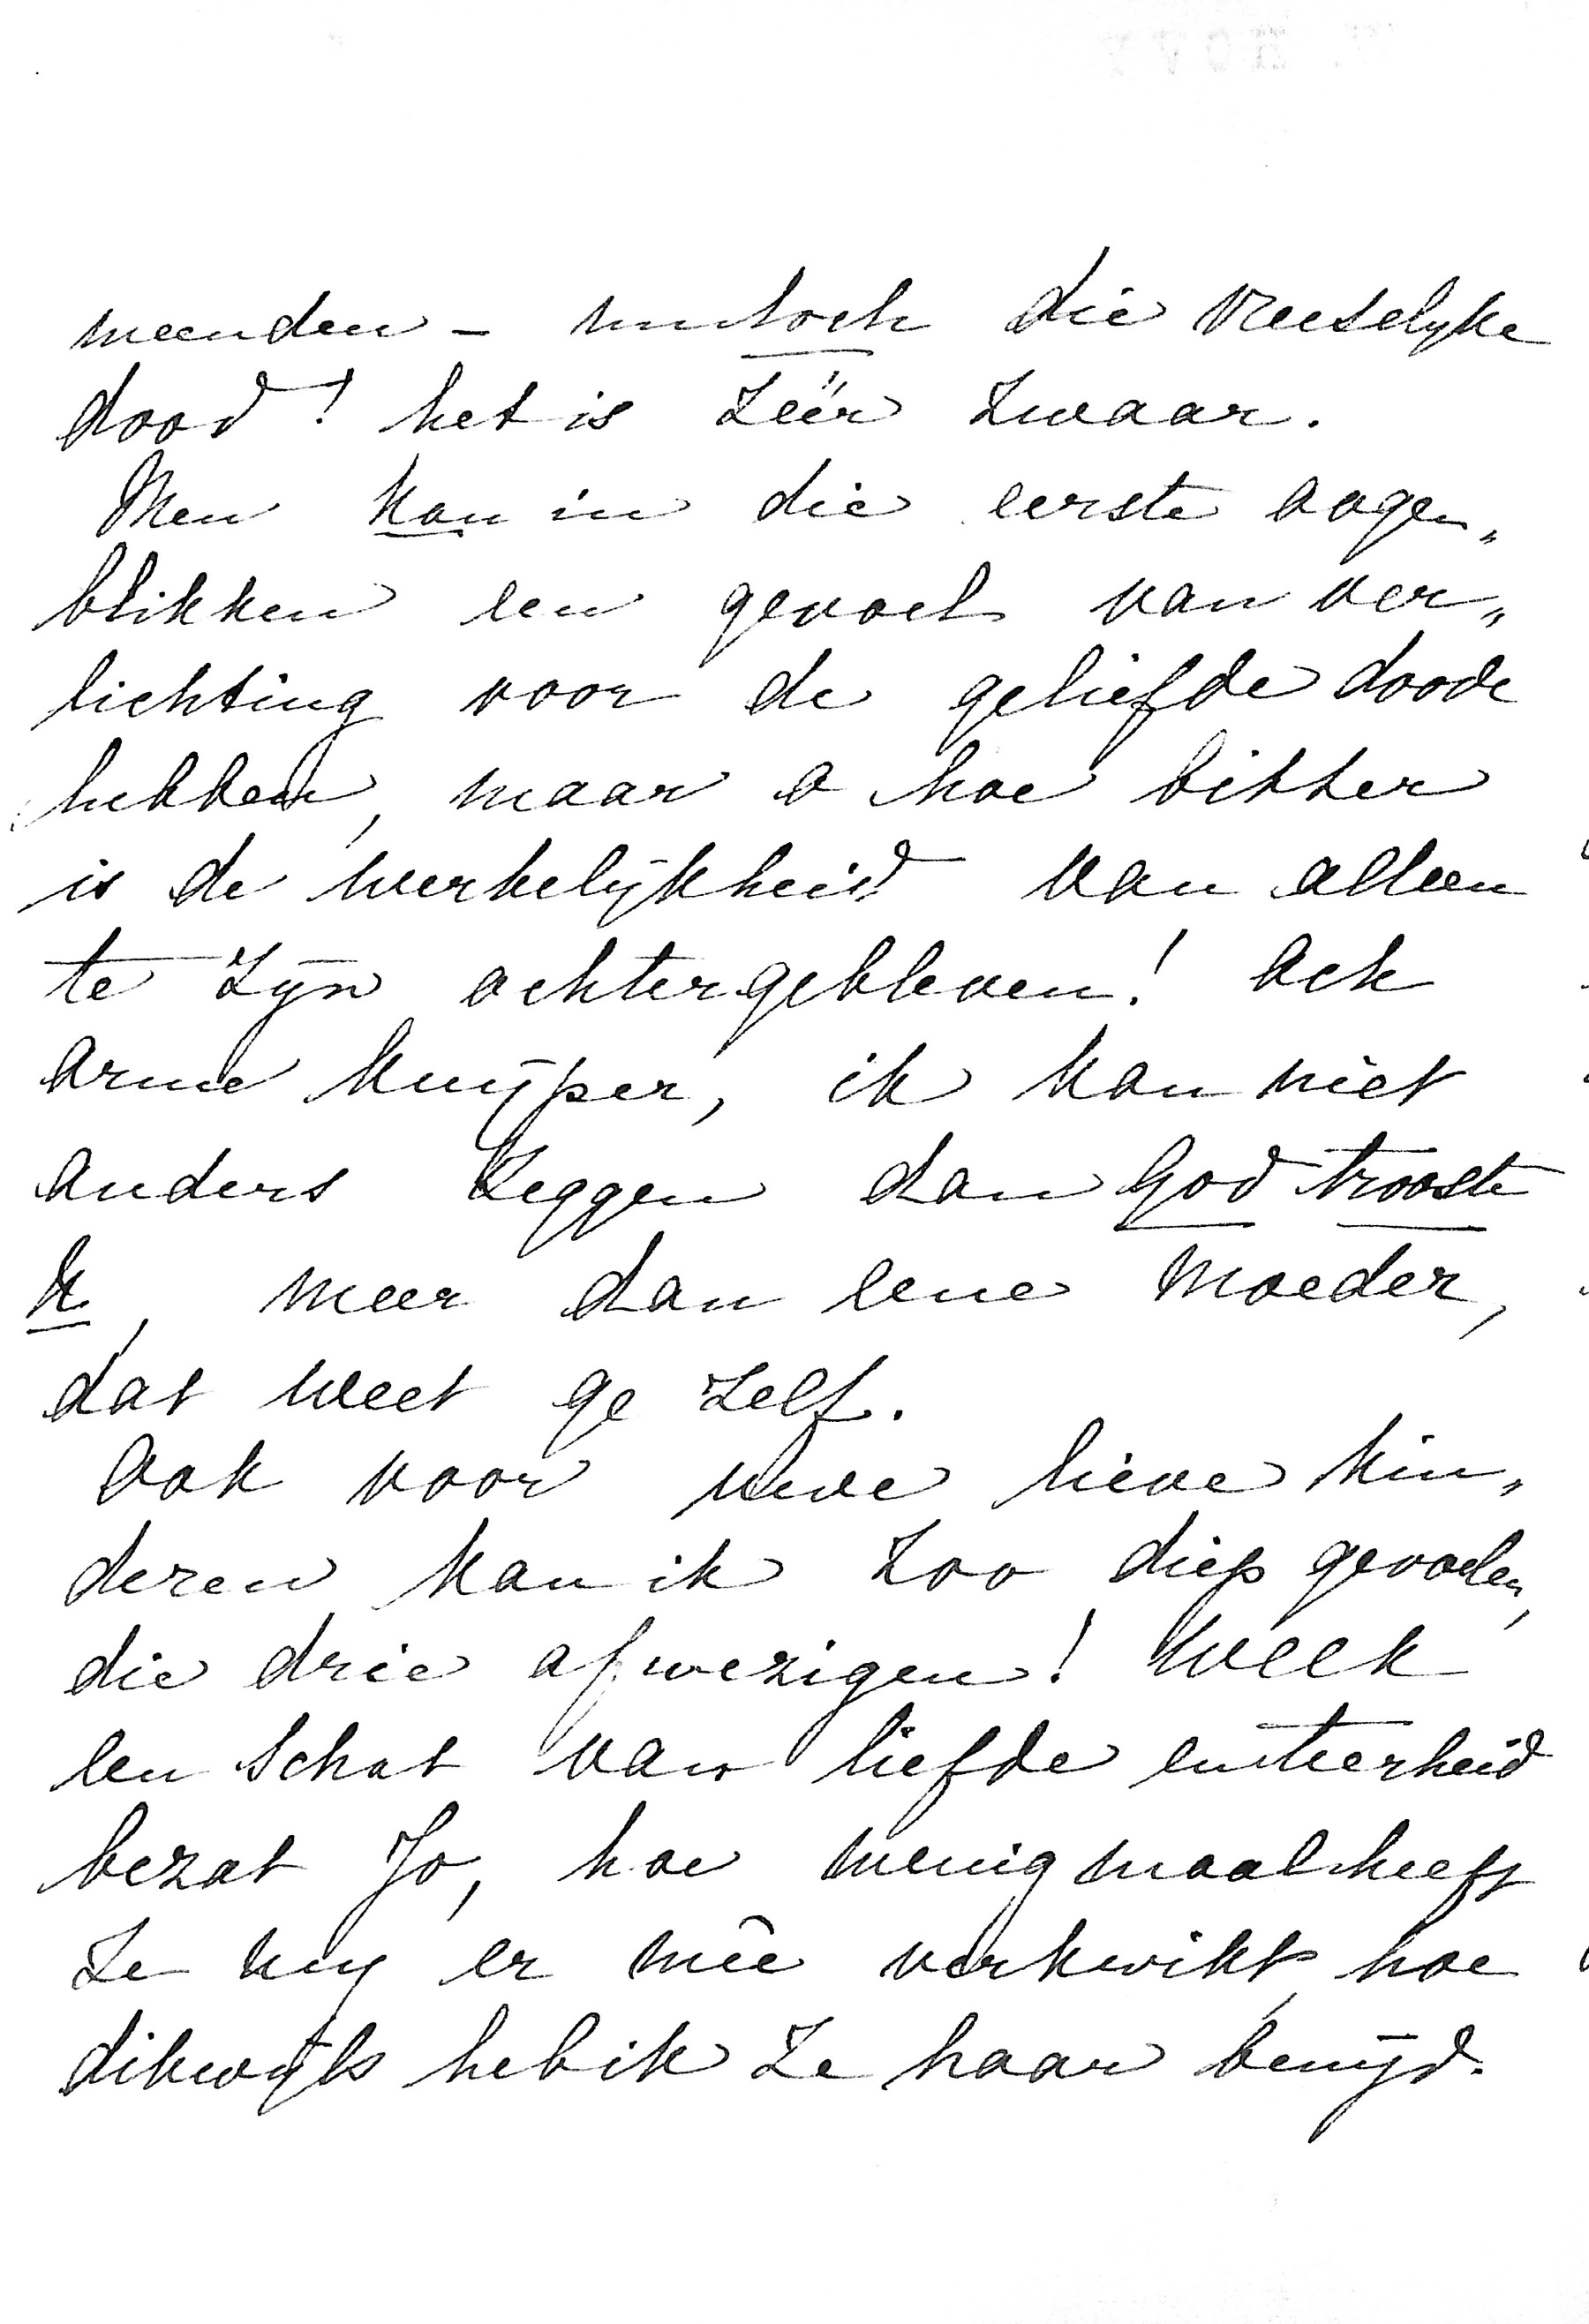 meenden – nu toch die vreeselyke
dood! het is zéér zwaar.
Men kan in die eerste oogen„
blikken een gevoel van ver„
lichting voor de geliefde doode
hebben, maar o hoe bitter
is de werkelijkheid van alleen
te zijn achtergebleven! Ach
arme Kuijper, ik kan niet
anders zeggen dan God trooste
U, meer dan eene moeder,
dat weet ge zelf.
Ook voor uwe lieve kin„
deren kan ik zoo diep gevoelen,
die drie afwezigen! Welk
een schat van liefde en teerheid
bezat Jo, hoe menigmaal heeft
ze my er mêe verkwikt, hoe
dikwijls heb ik ze haar benijd.